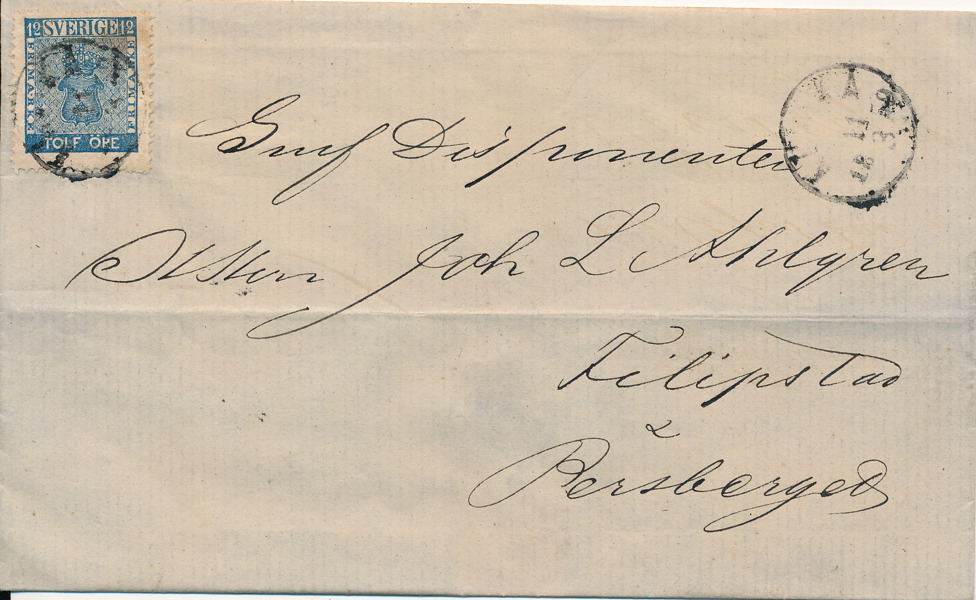 12 SVERIGE 12
FRIMÄRKE
FRIMÄRKE
TOLF ÖRE
Disponenten
Joh L Ahlgren
Filipstad
&
Persberget